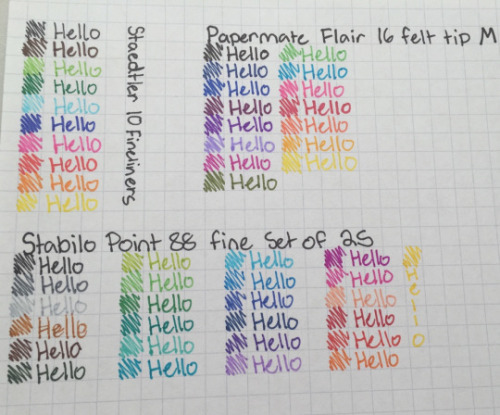 Staedtler 10 Fineliners
Hello
Hello
Hello
Hello
Hello
Hello
Hello
Hello
Hello
Hello
Papermate Flair 16 felt tip M
Hello Hello
Hello Hello
Hello Hello
Hello Hello
Hello Hello
Hello Hello
Hello Hello
Hello
Stabilo Point 88 fine Set of 25
Hello Hello Hello Hello
Hello Hello Hello Hello
Hello Hello Hello Hello
Hello Hello Hello Hello
Hello Hello Hello Hello
Hello Hello Hello Hello
Hello